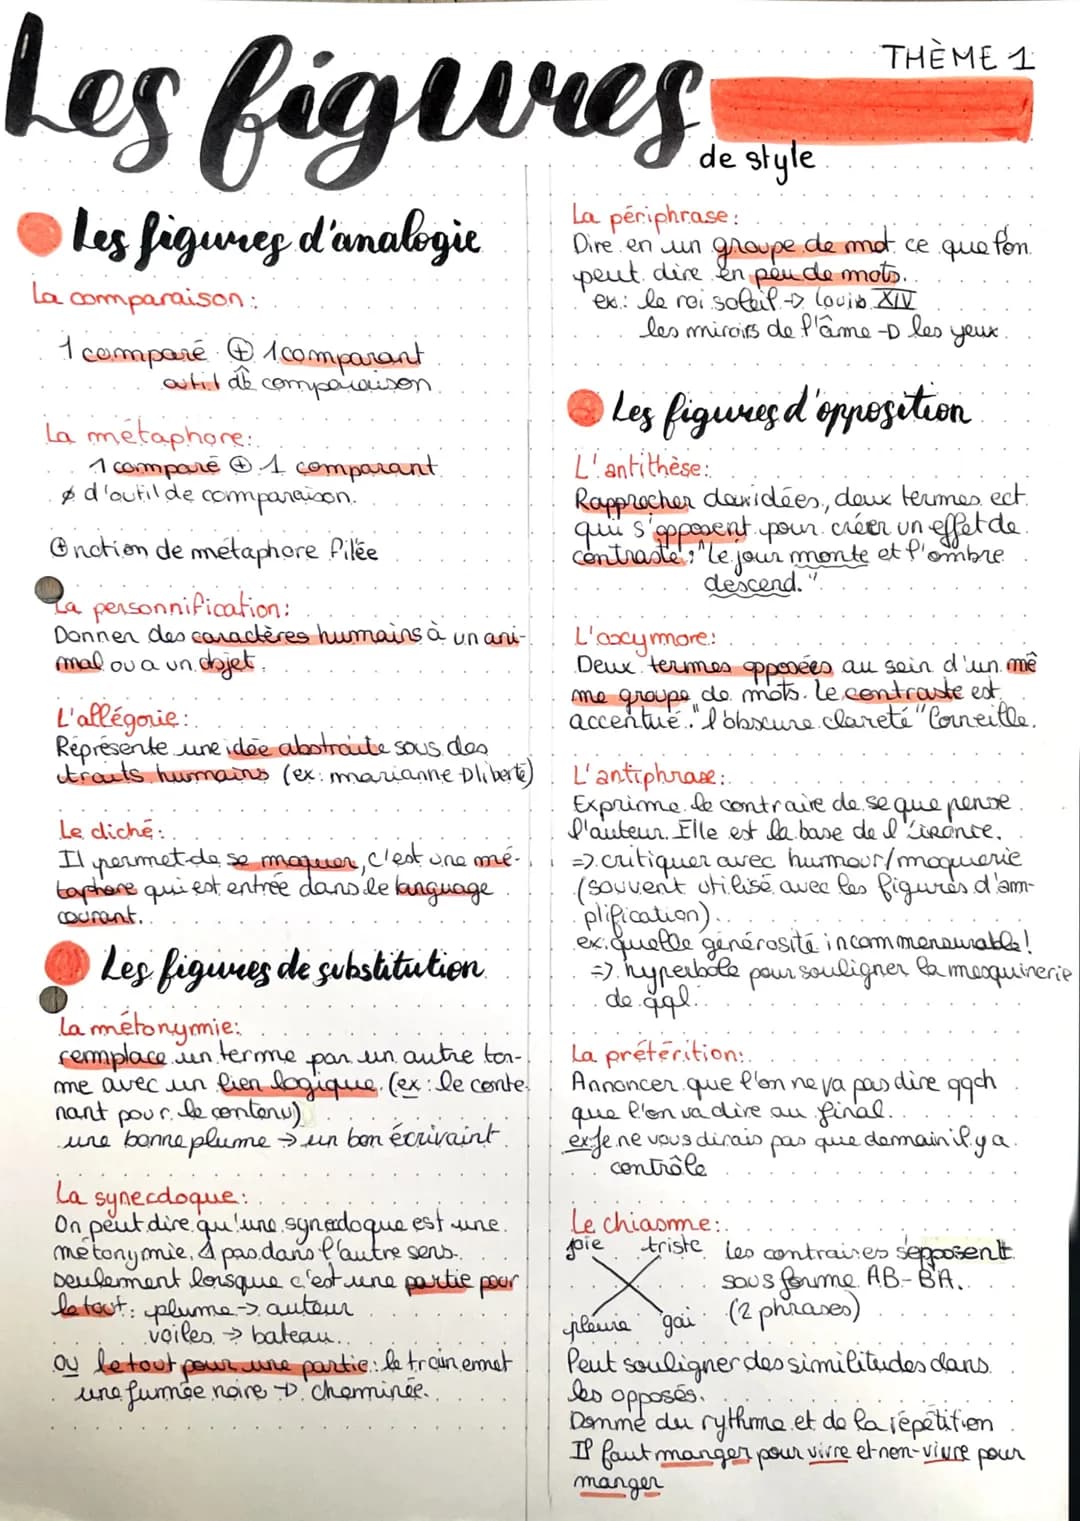 Les figures
THÈME 1
de style
Les figures d'analogie
La comparaison :
1 comparé ⊕ 1 comparant
outil de comparaison
La métaphore :
1 comparé ⊕ 1 comparant
∅ d'outil de comparaison.
⊕ notion de métaphore filée
La personnification :
Donner des caractères humains à un ani-
mal ou a un objet.
L'allégorie :
Représente une idée abstraite sous des
traits humains (ex: marianne → liberté)
Le cliché :
Il permet de se moquer, c'est une mé-
taphore qui est entrée dans le language
courant.
Les figures de substitution
La métonymie :
remplace un terme par un autre ter-
me avec un lien logique. (ex : le conte
nant pour le contenu)
une bonne plume → un bon écrivaint.
La synecdoque :
On peut dire qu'une synecdoque est une
métonymie, ⚠ pas dans l'autre sens.
Seulement lorsque c'est une partie pour
le tout : plume → auteur
voiles → bateau.
ou le tout pour une partie : le train emet
une fumée noire → cheminée.
La périphrase :
Dire en un groupe de mot ce que l'on
peut dire en peu de mots.
ex : le roi soleil → Louis XIV
les miroirs de l'âme → les yeux.
Les figures d'opposition
L'antithèse :
Rapprocher deux idées, deux termes ect
qui s'opposent pour créer un effet de
contraste : "Le jour monte et l'ombre
descend."
L'oxymore :
Deux termes opposées au sein d'un mê
me groupe de mots. Le contraste est
accentué. "l'obscure clareté" Corneille.
L'antiphrase :
Exprime le contraire de se que pense
l'auteur. Elle est la base de l'ironie.
=> critiquer avec humour/moquerie
(souvent utilisé avec les figures d'am-
plification).
ex: quelle générosité incommensurable !
=> hyperbole pour souligner la mesquinerie
de qql.
La prétérition :
Annoncer que l'on ne va pas dire qqch
que l'on va dire au final.
ex: Je ne vous dirais pas que demain il y a
contrôle
Le chiasme :
joie triste Les contraires s'opposent
sous forme AB-BA.
pleure gai (2 phrases)
Peut souligner des similitudes dans
les opposés.
Donne du rythme et de la répétition
Il faut manger pour vivre et non-vivre pour
manger